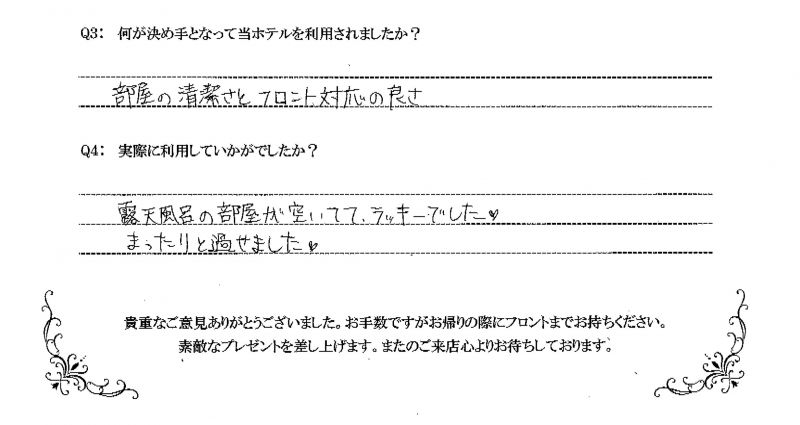 Q3： 何が決め手となって当ホテルを利用されましたか？
部屋の清潔さと フロント対応の良さ
Q4： 実際に利用していかがでしたか？
露天風呂の部屋が空いてて、ラッキーでした♥
まったりと過せました♥
貴重なご意見ありがとうございました。お手数ですがお帰りの際にフロントまでお持ちください。
素敵なプレゼントを差し上げます。またのご来店心よりお待ちしております。